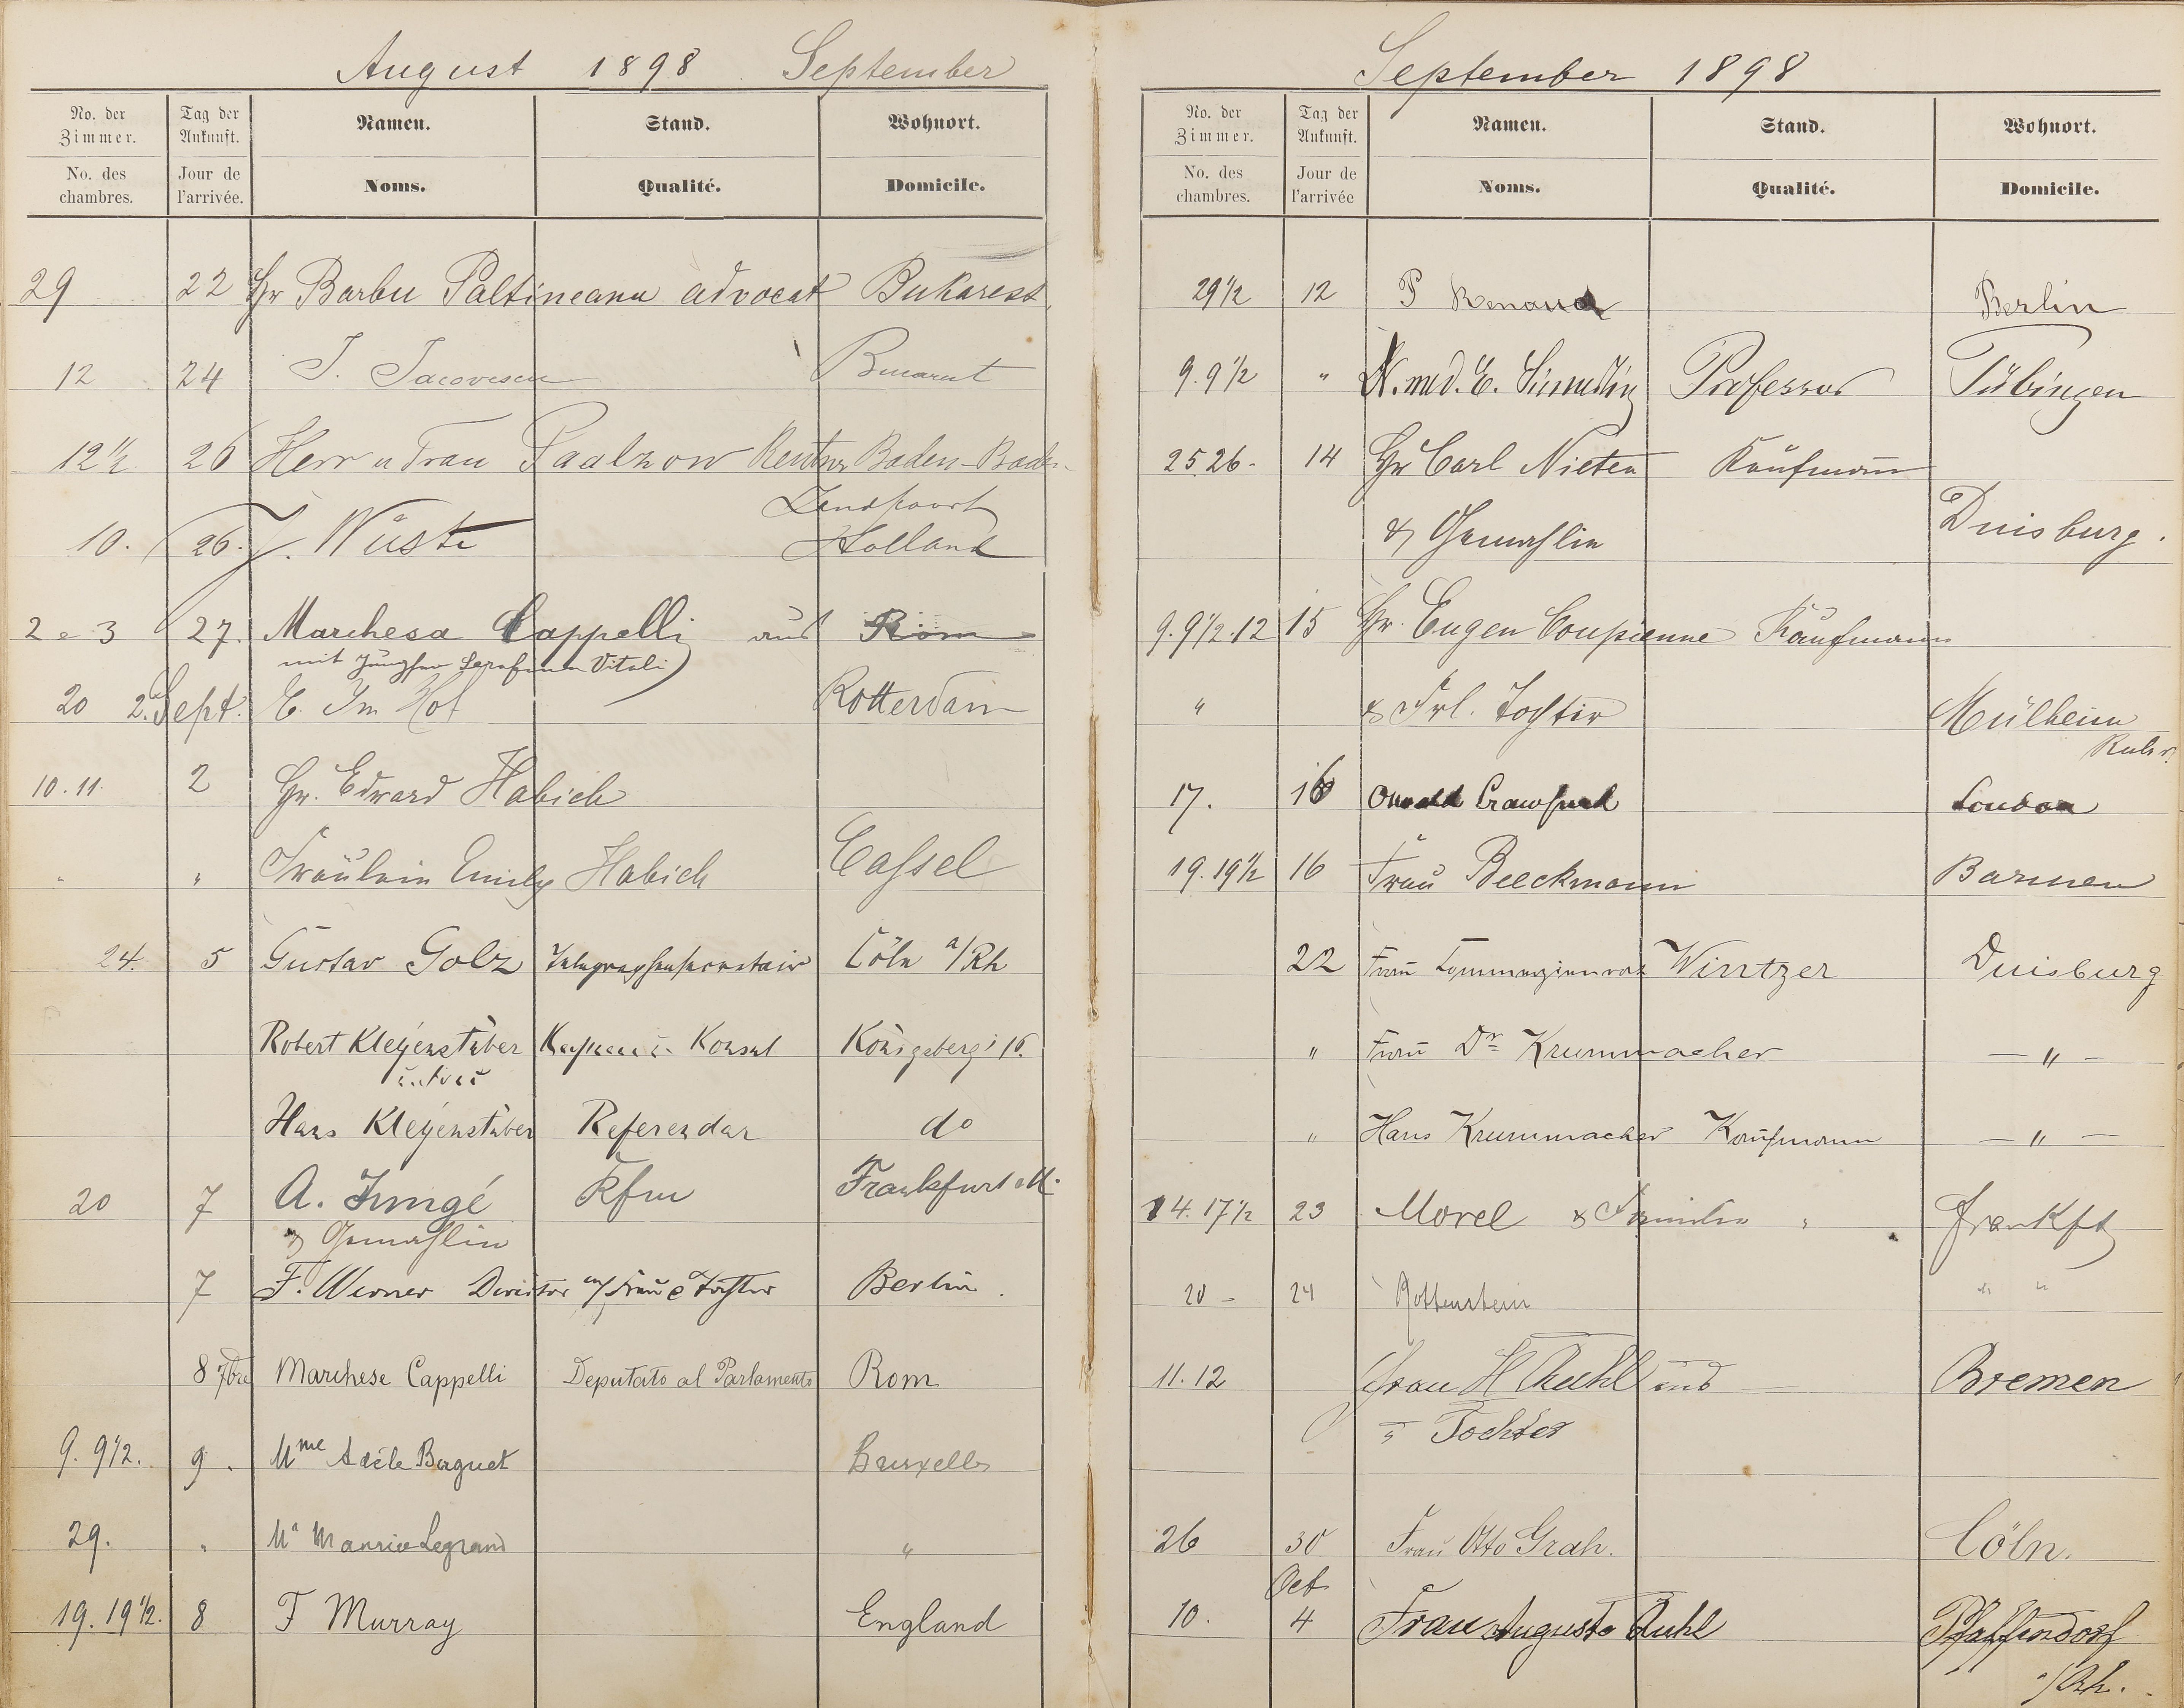 August 1898 September
No. der Zimmer. Tag der Ankunft. Namen. Stand. Wohnort.
No. des chambres. Jour de l'arrivée. Noms. Qualité. Domicile.
29 22 Hr Barbu Paltineanu advocat Bukarest
12 24 J. Jacovescu
12 1/2 26 Herr u Frau Paalzow Rentner Baden-Baden
Zandfoort
10. 26. J. Wüste Holland
2 e 3 27. Marchesa Cappelli aus Rom
mit Jungfer Serafina Vitali
20 2. Sept. E. Im Hof Rotterdam
10. 11. 2 Hr. Edward Habich
" " Fräulein Emily Habich Cassel
24. 5 Gustav Golz Cöln a/Rh
Robert Kleyenstüber Konsul Königsberg i/
Hans Kleyenstüber Referendar do
20 7 A. Jungé Kfm Frankfurt a M.
& Gemahlin
7 F. Werner Director m/ Frau e Tochter Berlin.
8 7bre Marchese Cappelli Deputato al Parlamento Rom
9. 9 1/2. 9. Mme Adèle Baguet Bruxelles
29. " Legrand "
19. 19 1/2. 8 F Murray England
September 1898
No. der Zimmer. Tag der Ankunft. Namen. Stand. Wohnort.
No. des chambres. Jour de l'arrivée Noms. Qualité. Domicile.
29 1/2 12 P Renaud Berlin
9. 9 1/2 " Dr. med. E. Professor Tübingen
25. 26- 14 Hr Carl Nieten Kaufmann
& Gemahlin Duisburg.
9. 9 1/2. 12 15 Hr. Eugen Coupienne Kaufmann
" & Frl. Tochter Mülheim
Ruhr.
17. 16 Oswald Crawfurd London
19. 19 1/2 16 Frau Beeckmann Barmen
22 Frau Commerzienrat Wintzer Duisburg
" Frau Dr Krummacher — " —
" Hans Krummacher Kaufmann — " —
14. 17 1/2 23 Morel & Familie " Frankft
20 - 24 Rottenstein " "
11. 12 Frau H Ruhl und Bremen
Tochter
26 30 Frau Otto Grah. Cöln.
Oct
10. 4 Frau Auguste Ruhl Pfaffendorf
a/Rh.